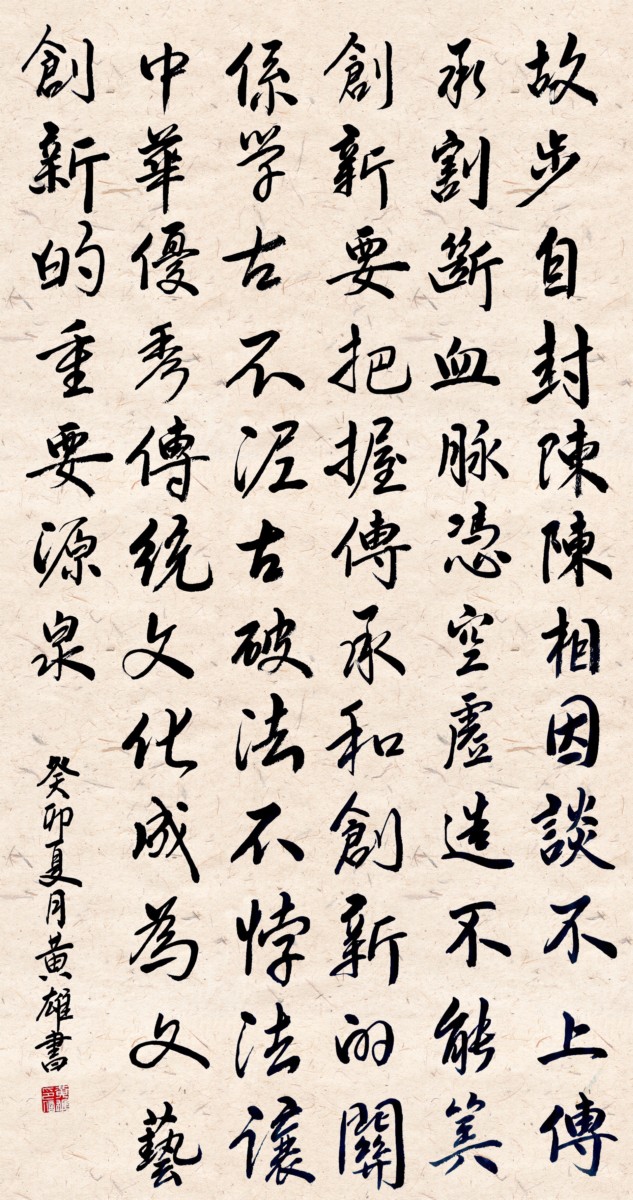 故步自封陳陳相因談不上傳
承割斷血脉憑空虛造不能筭
創新要把握傳承和創新的關
係学古不泥古破法不悖法讓
中華優秀傳統文化成為文藝
創新的重要源泉
癸卯夏月黄雄書